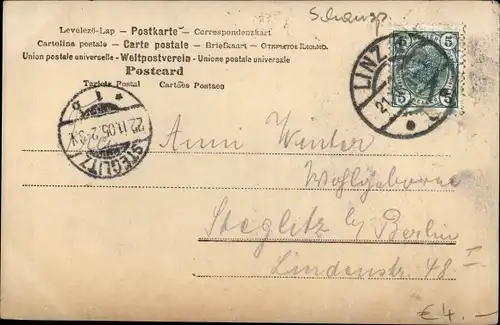 Schausp
Levelező-Lap — Postkarte — Correspondenzkart
Cartolina postale — Carte postale — Briefkaart — Открытое письмо.
Union postale universelle — Weltpostverein — Unione postale universale
Postcard
Tarjeta Postal Cartões Postaes
5 5
LINZ
STEGLITZ
22.11.05.
Anni Winter
Wohlgeborne
Steglitz by Berlin
Lindenstr. 48 I
€ 4.—